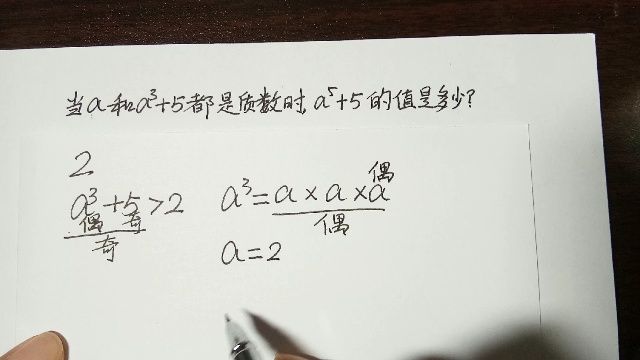 当a和a³+5都是质数时,a⁵+5的值是多少?
2
a³+5>2
偶 奇
奇
a³=a×a×a
偶
偶
a=2